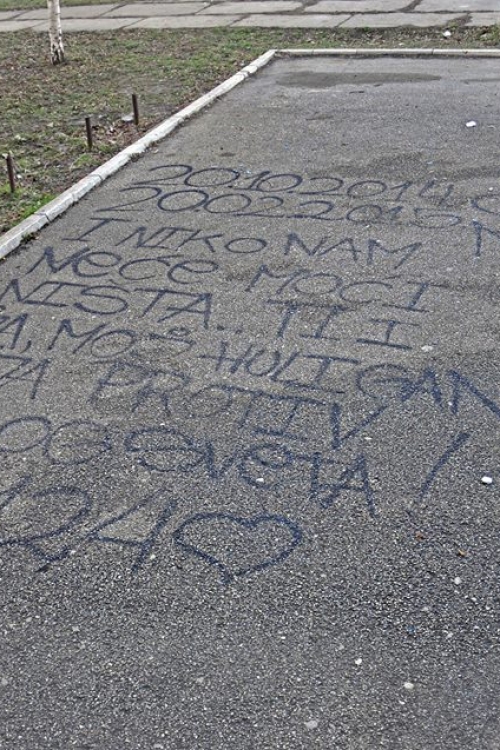 20.10.2014.
20.02.2015
I NIKO NAM
NeĆe MOĆI
NIŠTA.. TI I
MOJ HULIGAN
PROTIV
SveTA!